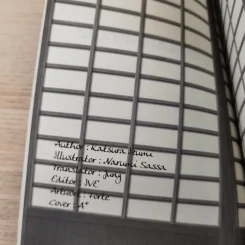 Author : Katsura Izumi
Illustrator : Narumi Sassa
Translator : Jung
Editor : IVE
Artwork : Forte
Cover : A+